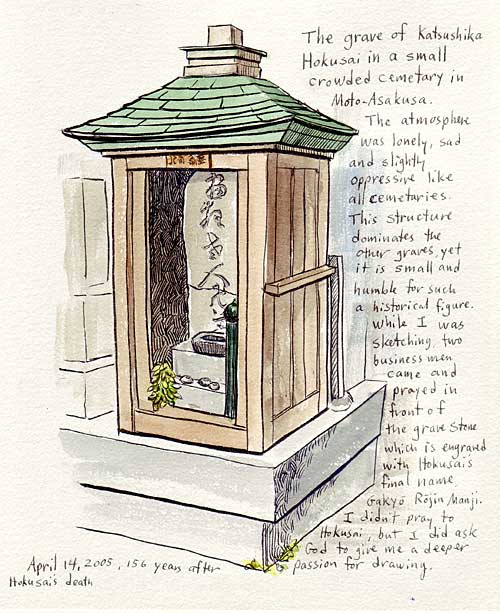 The grave of Katsushika
Hokusai in a small
crowded cemetary in
Moto-Asakusa.
The atmosphere
was lonely, sad
and slightly
oppressive like
all cemetaries.
This structure
dominates the
other graves, yet
it is small and
humble for such
a historical figure.
While I was
sketching, two
business men
came and
prayed in
front of
the grave stone
which is engraved
with Hokusai's
final name
Gakyō Rōjin Manji.
I didn't pray to
Hokusai, but I did ask
God to give me a deeper
passion for drawing.
April 14, 2005, 156 years after
Hokusai's death